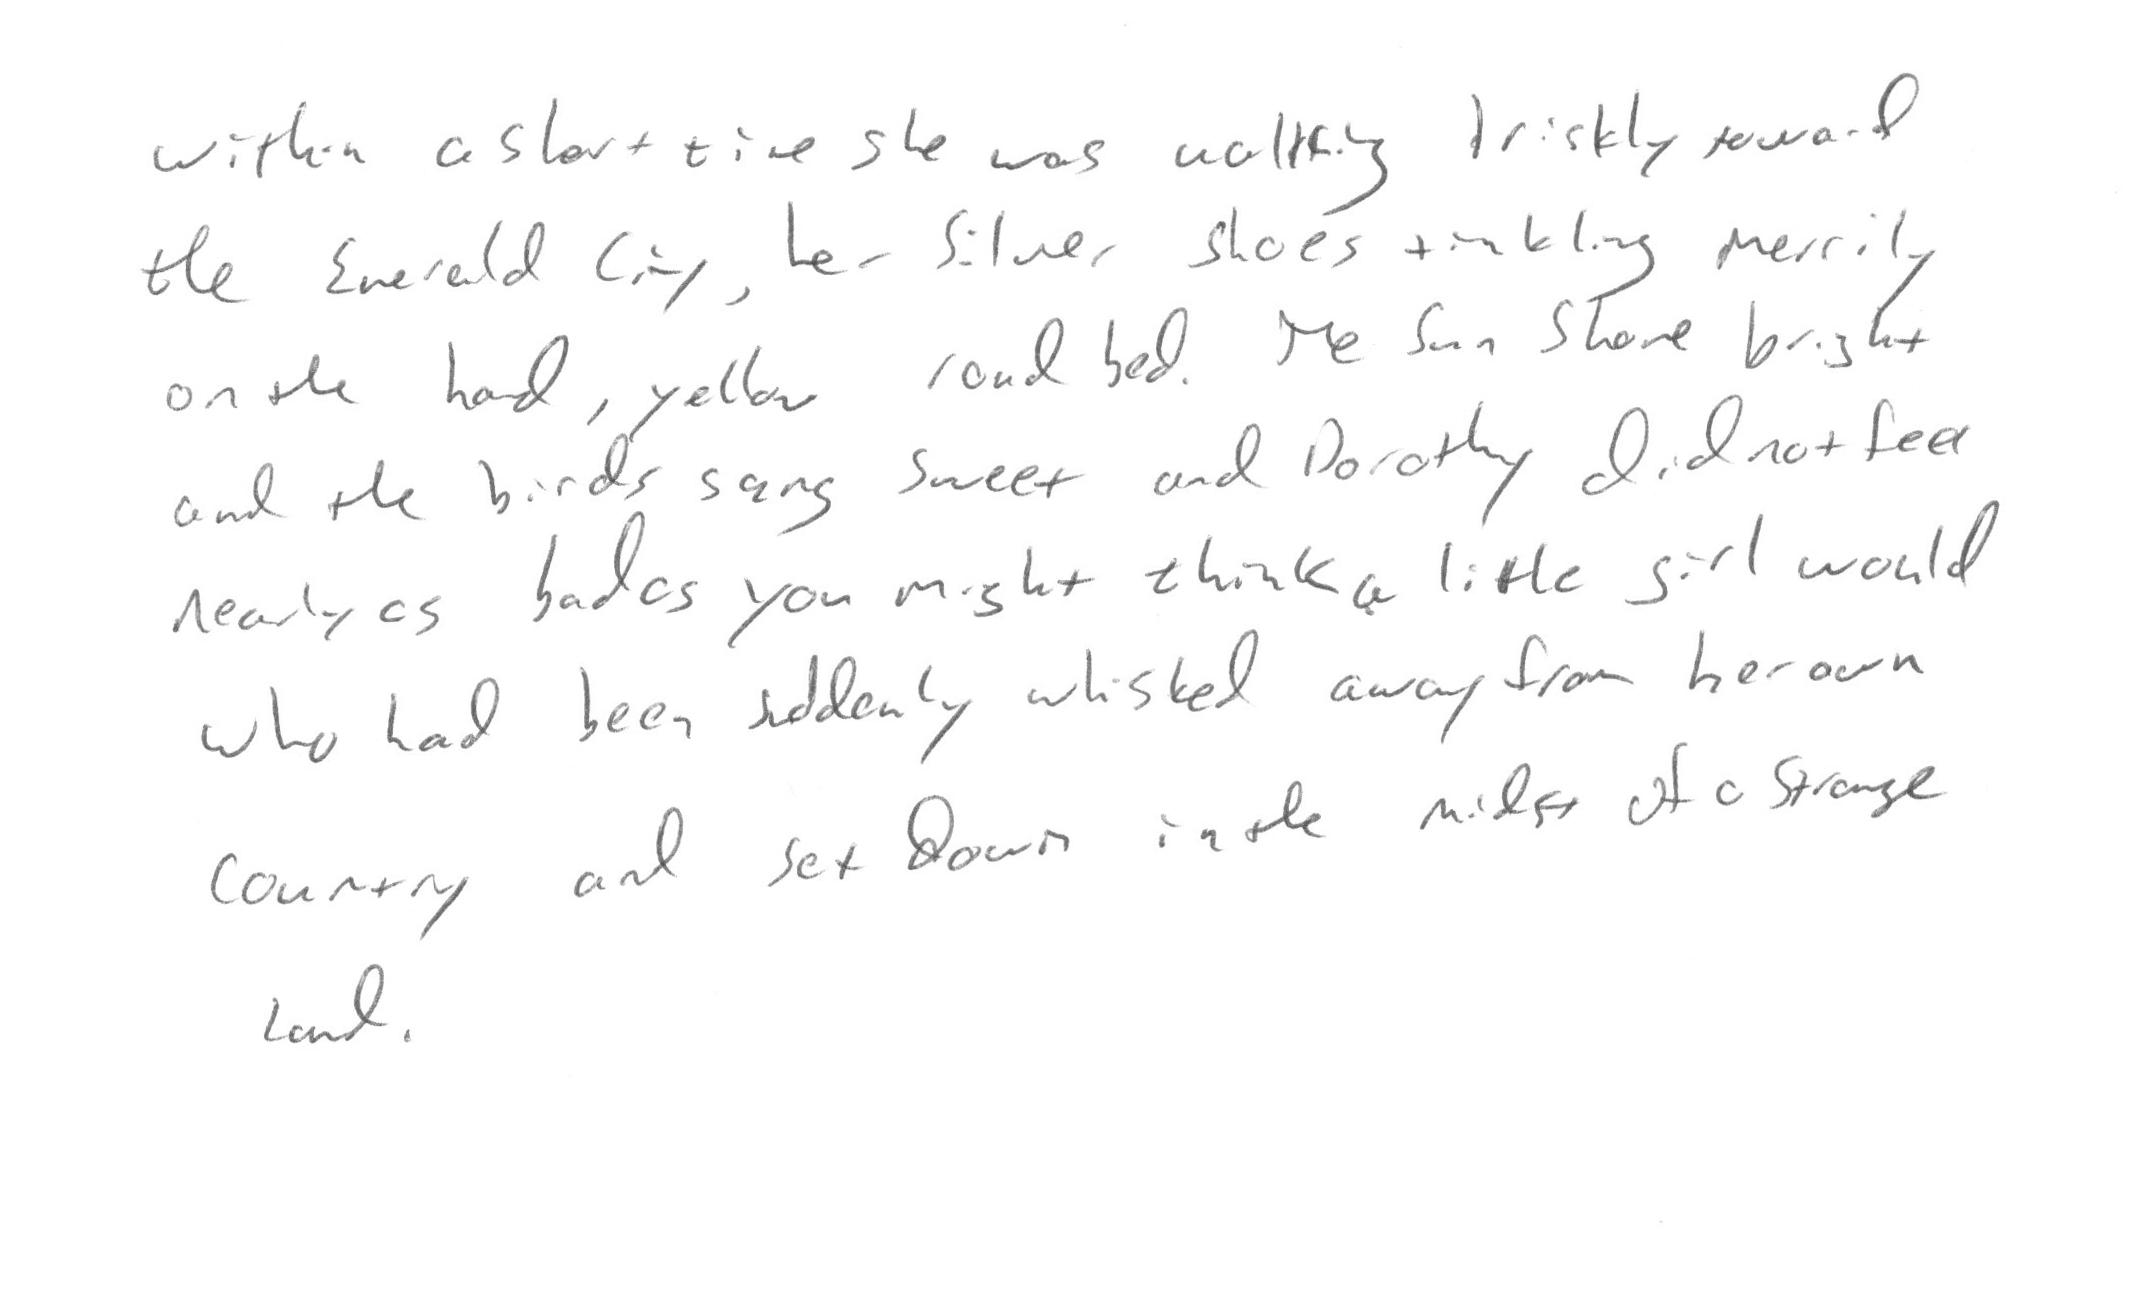 within a short time she was walking briskly toward
the Emerald City, her Silver shoes tinkling merrily
on the hard, yellow road bed. The Sun Shone bright
and the birds sang sweet and Dorothy did not feel
nearly as bad as you might think a little girl would
who had been suddenly whisked away from her own
Country and set Down in the midst of a Strange
Land.